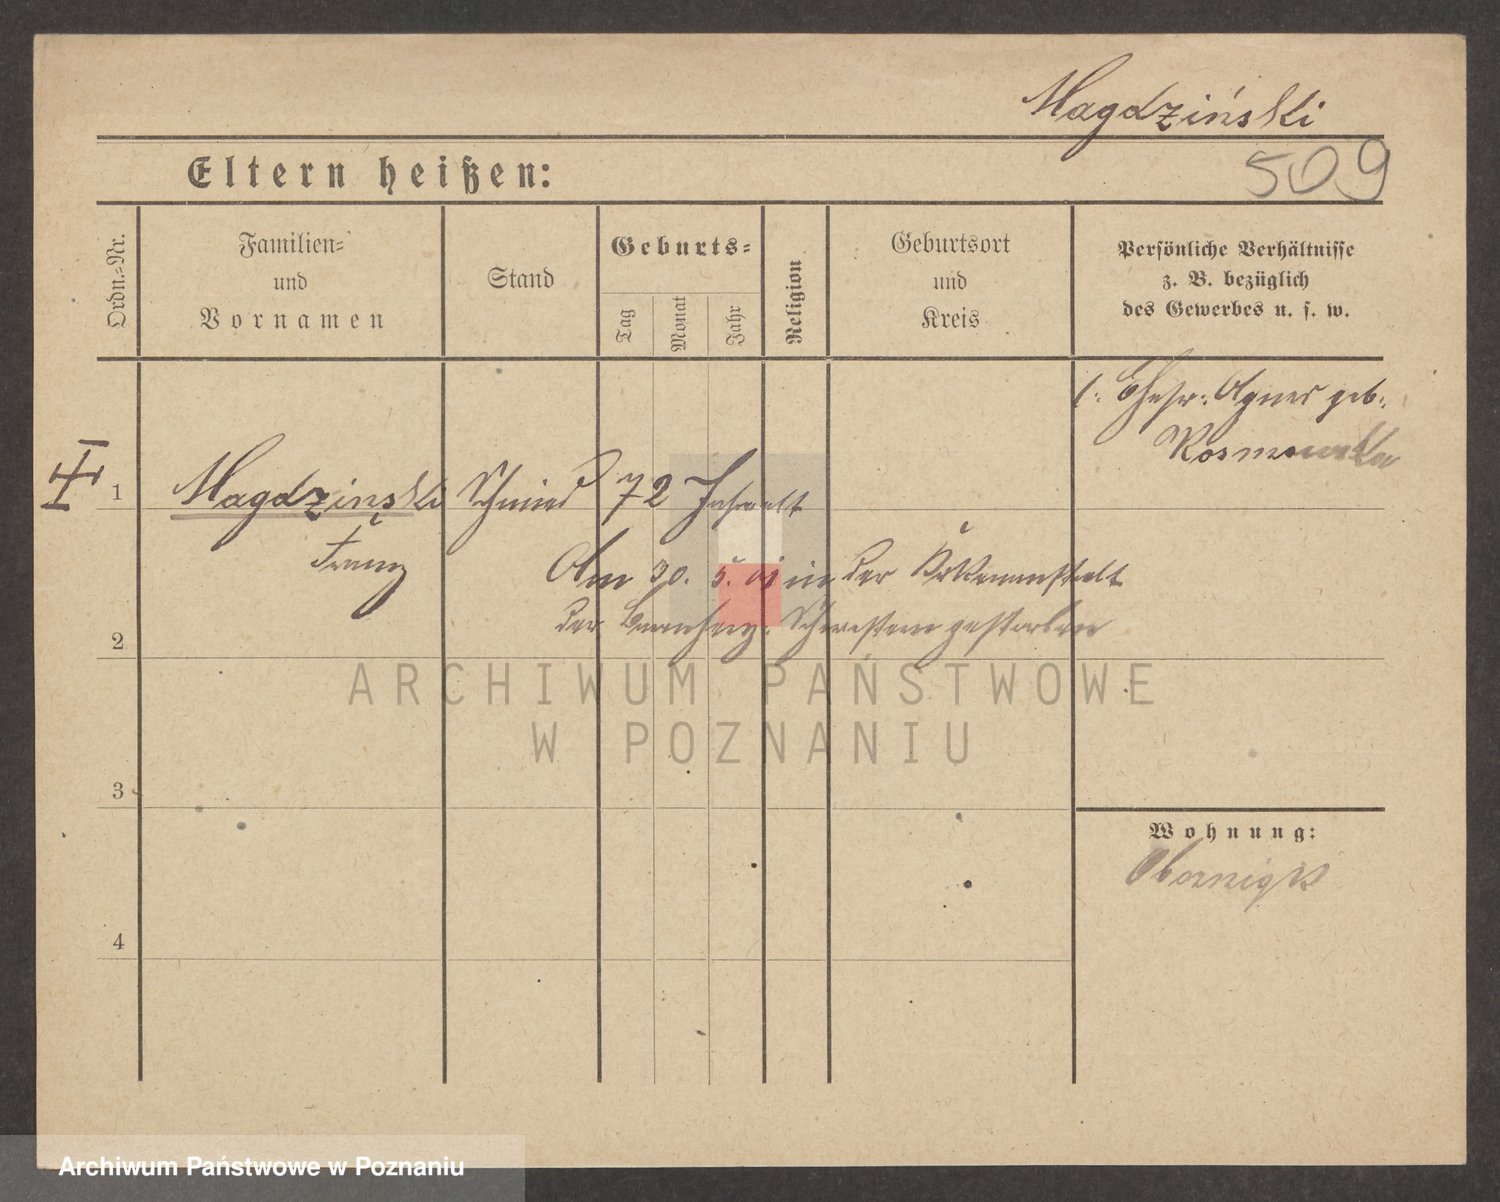 Magdziński
509
Eltern heißen:
Ordn.-Nr.
Familien-
und
Vornamen
Stand
Geburts-
Tag
Monat
Jahr
Religion
Geburtsort
und
Kreis
Persönliche Verhältnisse
z. B. bezüglich
des Gewerbes u. s. w.
Ehefr: Agnes geb:
1 Magdzinski Schmied 72 Jahre alt
Franz
Am 30. 5. in der Krankenanstalt
der Barmherz: Schwestern gestorben
2
ARCHIWUM PAŃSTWOWE
W POZNANIU
3
Wohnung:
Obornigk
4
Archiwum Państwowe w Poznaniu